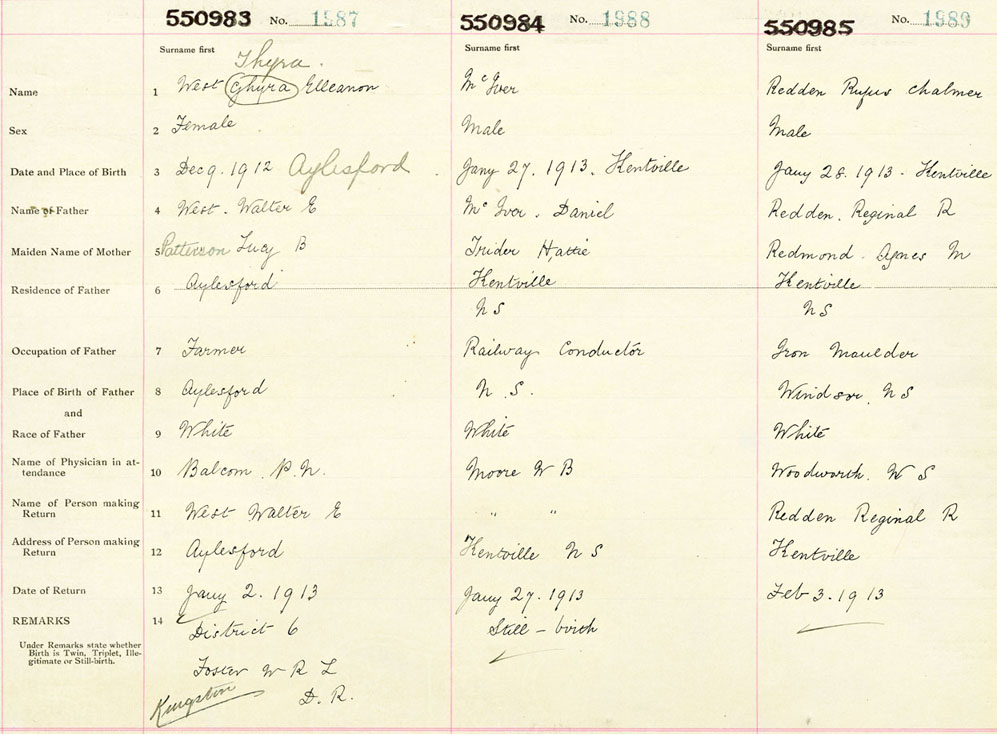 550983 No. 1987 550984 No. 1988 550985 No. 1989
Surname first Surname first Surname first
Thyra.
Name 1 West Ghyra Elleanon Mc Iver Redden Rufus Chalmer
Sex 2 Female Male Male
Date and Place of Birth 3 Dec 9. 1912 Aylesford Jany 27. 1913. Kentville Jany 28. 1913. Kentville
Name of Father 4 West. Walter E Mc Iver. Daniel Redden. Reginal R
Maiden Name of Mother 5 Patterson Lucy B Trider Hattie Redmond. Agnes M
Residence of Father 6 Aylesford Kentville Kentville
N S N S
Occupation of Father 7 Farmer Railway Conductor Iron Moulder
Place of Birth of Father 8 Aylesford N. S. Windsor. N S
and
Race of Father 9 White White White
Name of Physician in at-
tendance 10 Balcom. P. N. Moore W B Woodworth. W S
Name of Person making
Return 11 West Walter E " " Redden Reginal R
Address of Person making
Return 12 Aylesford Kentville N S Kentville
Date of Return 13 Jany 2. 1913 Jany 27. 1913 Feb 3. 1913
REMARKS 14 District 6 Still - birth
Under Remarks state whether
Birth is Twin, Triplet, Ille-
gitimate or Still-birth.
Foster W R L
Kingston D. R.